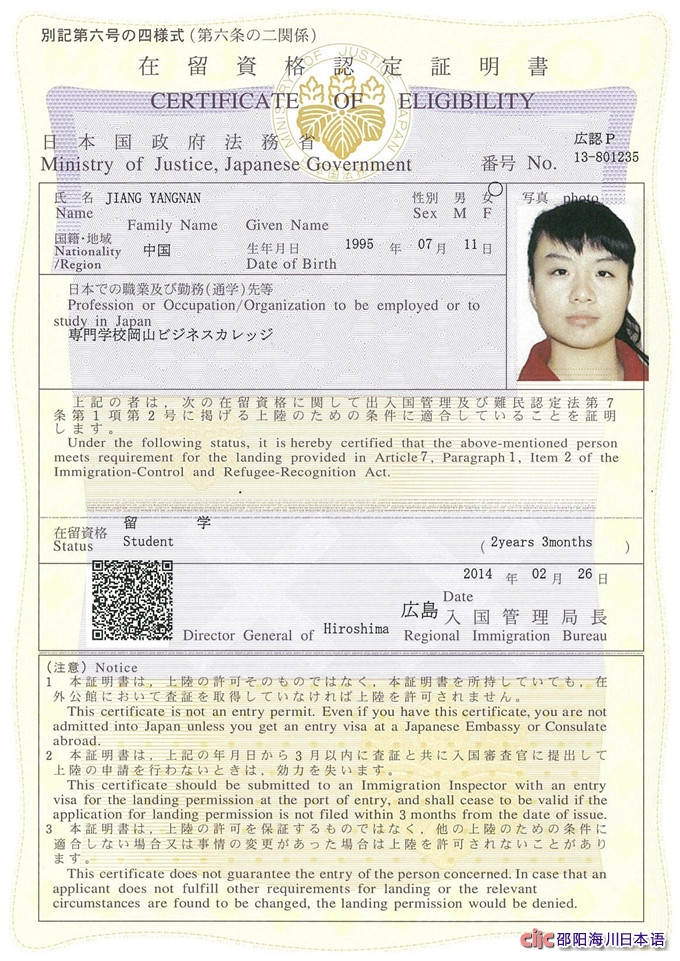 別記第六号の四様式(第六条の二関係)
在留資格認定証明書
CERTIFICATE OF ELIGIBILITY
MINISTRY OF JUSTICE JAPAN
日本国政府法務省
Ministry of Justice, Japanese Government
番号 No.
広認P
13-801235
氏名 JIANG YANGNAN
Name
Family Name Given Name
性別 男 女
Sex M F
写真 photo
国籍・地域
Nationality
/Region
中国
生年月日 1995 年 07 月 11 日
Date of Birth
日本での職業及び勤務(通学)先等
Profession or Occupation/Organization to be employed or to
study in Japan
専門学校岡山ビジネスカレッジ
上記の者は,次の在留資格に関して出入国管理及び難民認定法第7
条第1項第2号に掲げる上陸のための条件に適合していることを証明
します。
Under the following status, it is hereby certified that the above-mentioned person
meets requirement for the landing provided in Article 7, Paragraph 1, Item 2 of the
Immigration-Control and Refugee-Recognition Act.
在留資格 留学
Status Student
( 2years 3months )
2014 年 02 月 26 日
Date
広島 入国管理局長
Director General of Hiroshima Regional Immigration Bureau
(注意) Notice
1 本証明書は,上陸の許可そのものではなく,本証明書を所持していても,在
外公館において査証を取得していなければ上陸を許可されません。
This certificate is not an entry permit. Even if you have this certificate, you are not
admitted into Japan unless you get an entry visa at a Japanese Embassy or Consulate
abroad.
2 本証明書は,上記の年月日から3月以内に査証と共に入国審査官に提出して
上陸の申請を行わないときは,効力を失います。
This certificate should be submitted to an Immigration Inspector with an entry
visa for the landing permission at the port of entry, and shall cease to be valid if the
application for landing permission is not filed within 3 months from the date of issue.
3 本証明書は,上陸の許可を保証するものではなく,他の上陸のための条件に
適合しない場合又は事情の変更があった場合は上陸を許可されないことがあり
ます。
This certificate does not guarantee the entry of the person concerned. In case that an
applicant does not fulfill other requirements for landing or the relevant
circumstances are found to be changed, the landing permission would be denied.
clic 邵阳海川日本语